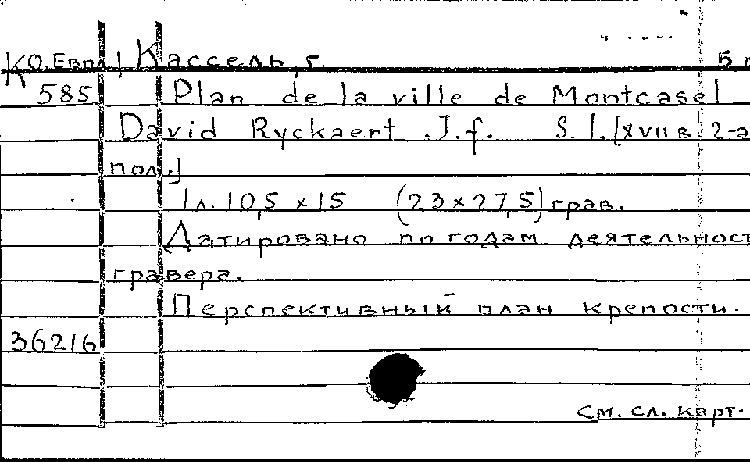 КО.Евп./ Кассель, г.
585 Plan de la ville de Montcasel
David Ryckaert .J.f. S.l. [XVII в. 2-а
пол.]
1л. 10,5 x 15 (23 x 27,5) грав.
Датировано по годам деятельност
гравера.
Перспективный план крепости.
36216
См. сл. карт.